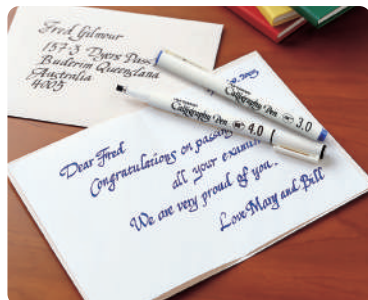 Fred Gilmour
157-3 Dyers Pass
Buderim Queensland
Australia
4005
2005
Calligraphy Pen 3.0
Calligraphy Pen 4.0
Dear Fred
Congratulations on passing
all your
We are very proud of you.
Love Mary and Bill